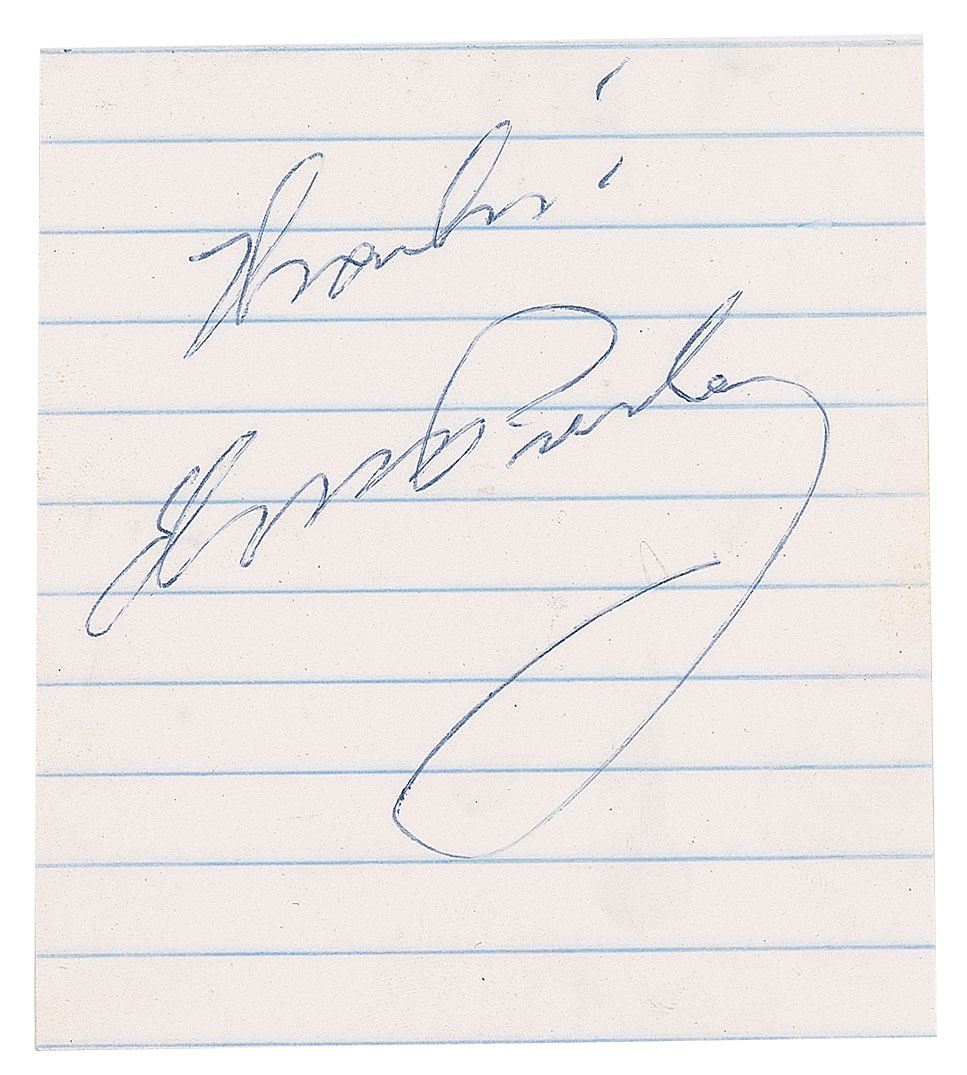 Thanks
Elvis Presley